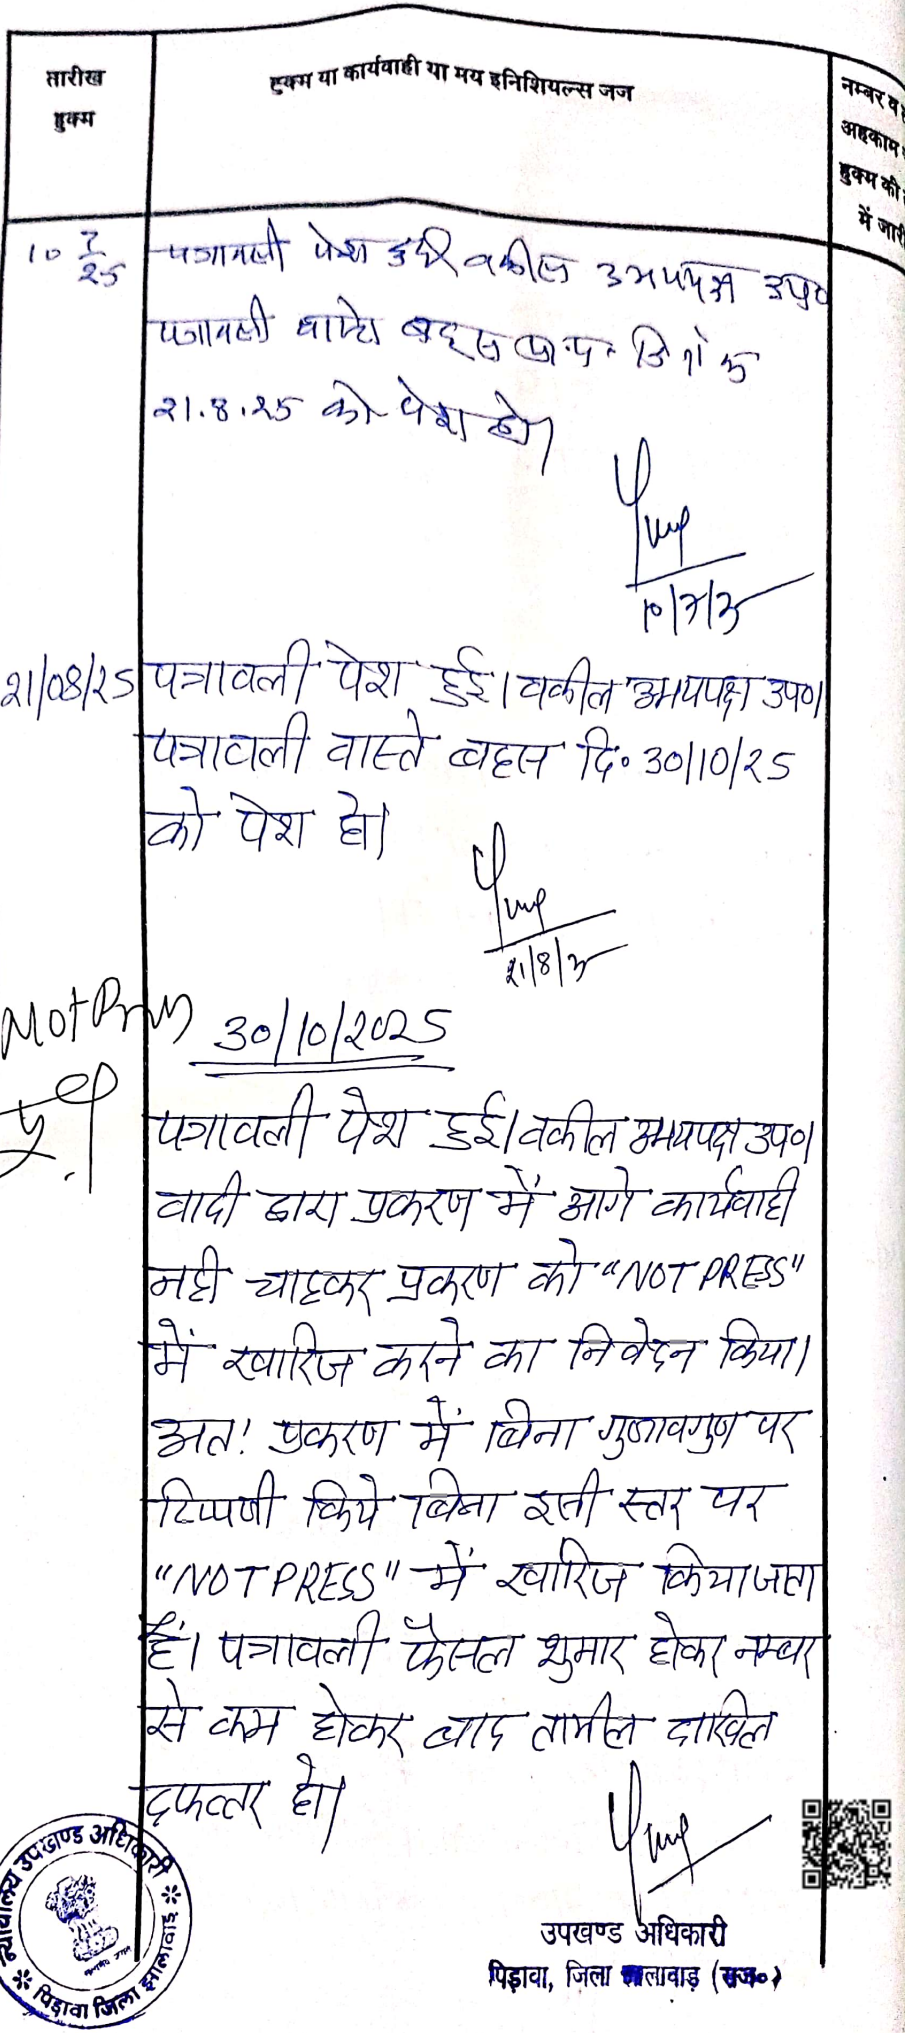 तारीख
हुक्म
हुक्म या कार्यवाही या मय इनिशियल्स जज
नम्बर व
अहकाम
हुक्म की
में जारी
10 7/25
पत्रावली पेश हुई वकील उभयपक्ष उप०
पत्रावली वास्ते बहस प्रा.प. दिनांक
21.8.25 को पेश हो।
10/7/25
21/08/25
पत्रावली पेश हुई। वकील उभयपक्ष उप०।
पत्रावली वास्ते बहस दि० 30/10/25
को पेश हो।
21/8/25
Not Press
30/10/2025
पत्रावली पेश हुई। वकील उभयपक्ष उप०।
वादी द्वारा प्रकरण में आगे कार्यवाही
नही चाहकर प्रकरण को "NOT PRESS"
में खारिज करने का निवेदन किया।
अत: प्रकरण में बिना गुणावगुण पर
टिप्पणी किये बिना इसी स्तर पर
"NOT PRESS" में खारिज किया जाता
हैं। पत्रावली फैसल शुमार होकर नम्बर
से कम होकर बाद तामील दाखिल
दफ्तर हो।
न्यायालय उपखण्ड अधिकारी
पिड़ावा जिला झालावाड़
उपखण्ड अधिकारी
पिड़ावा, जिला झालावाड़ (राज०)